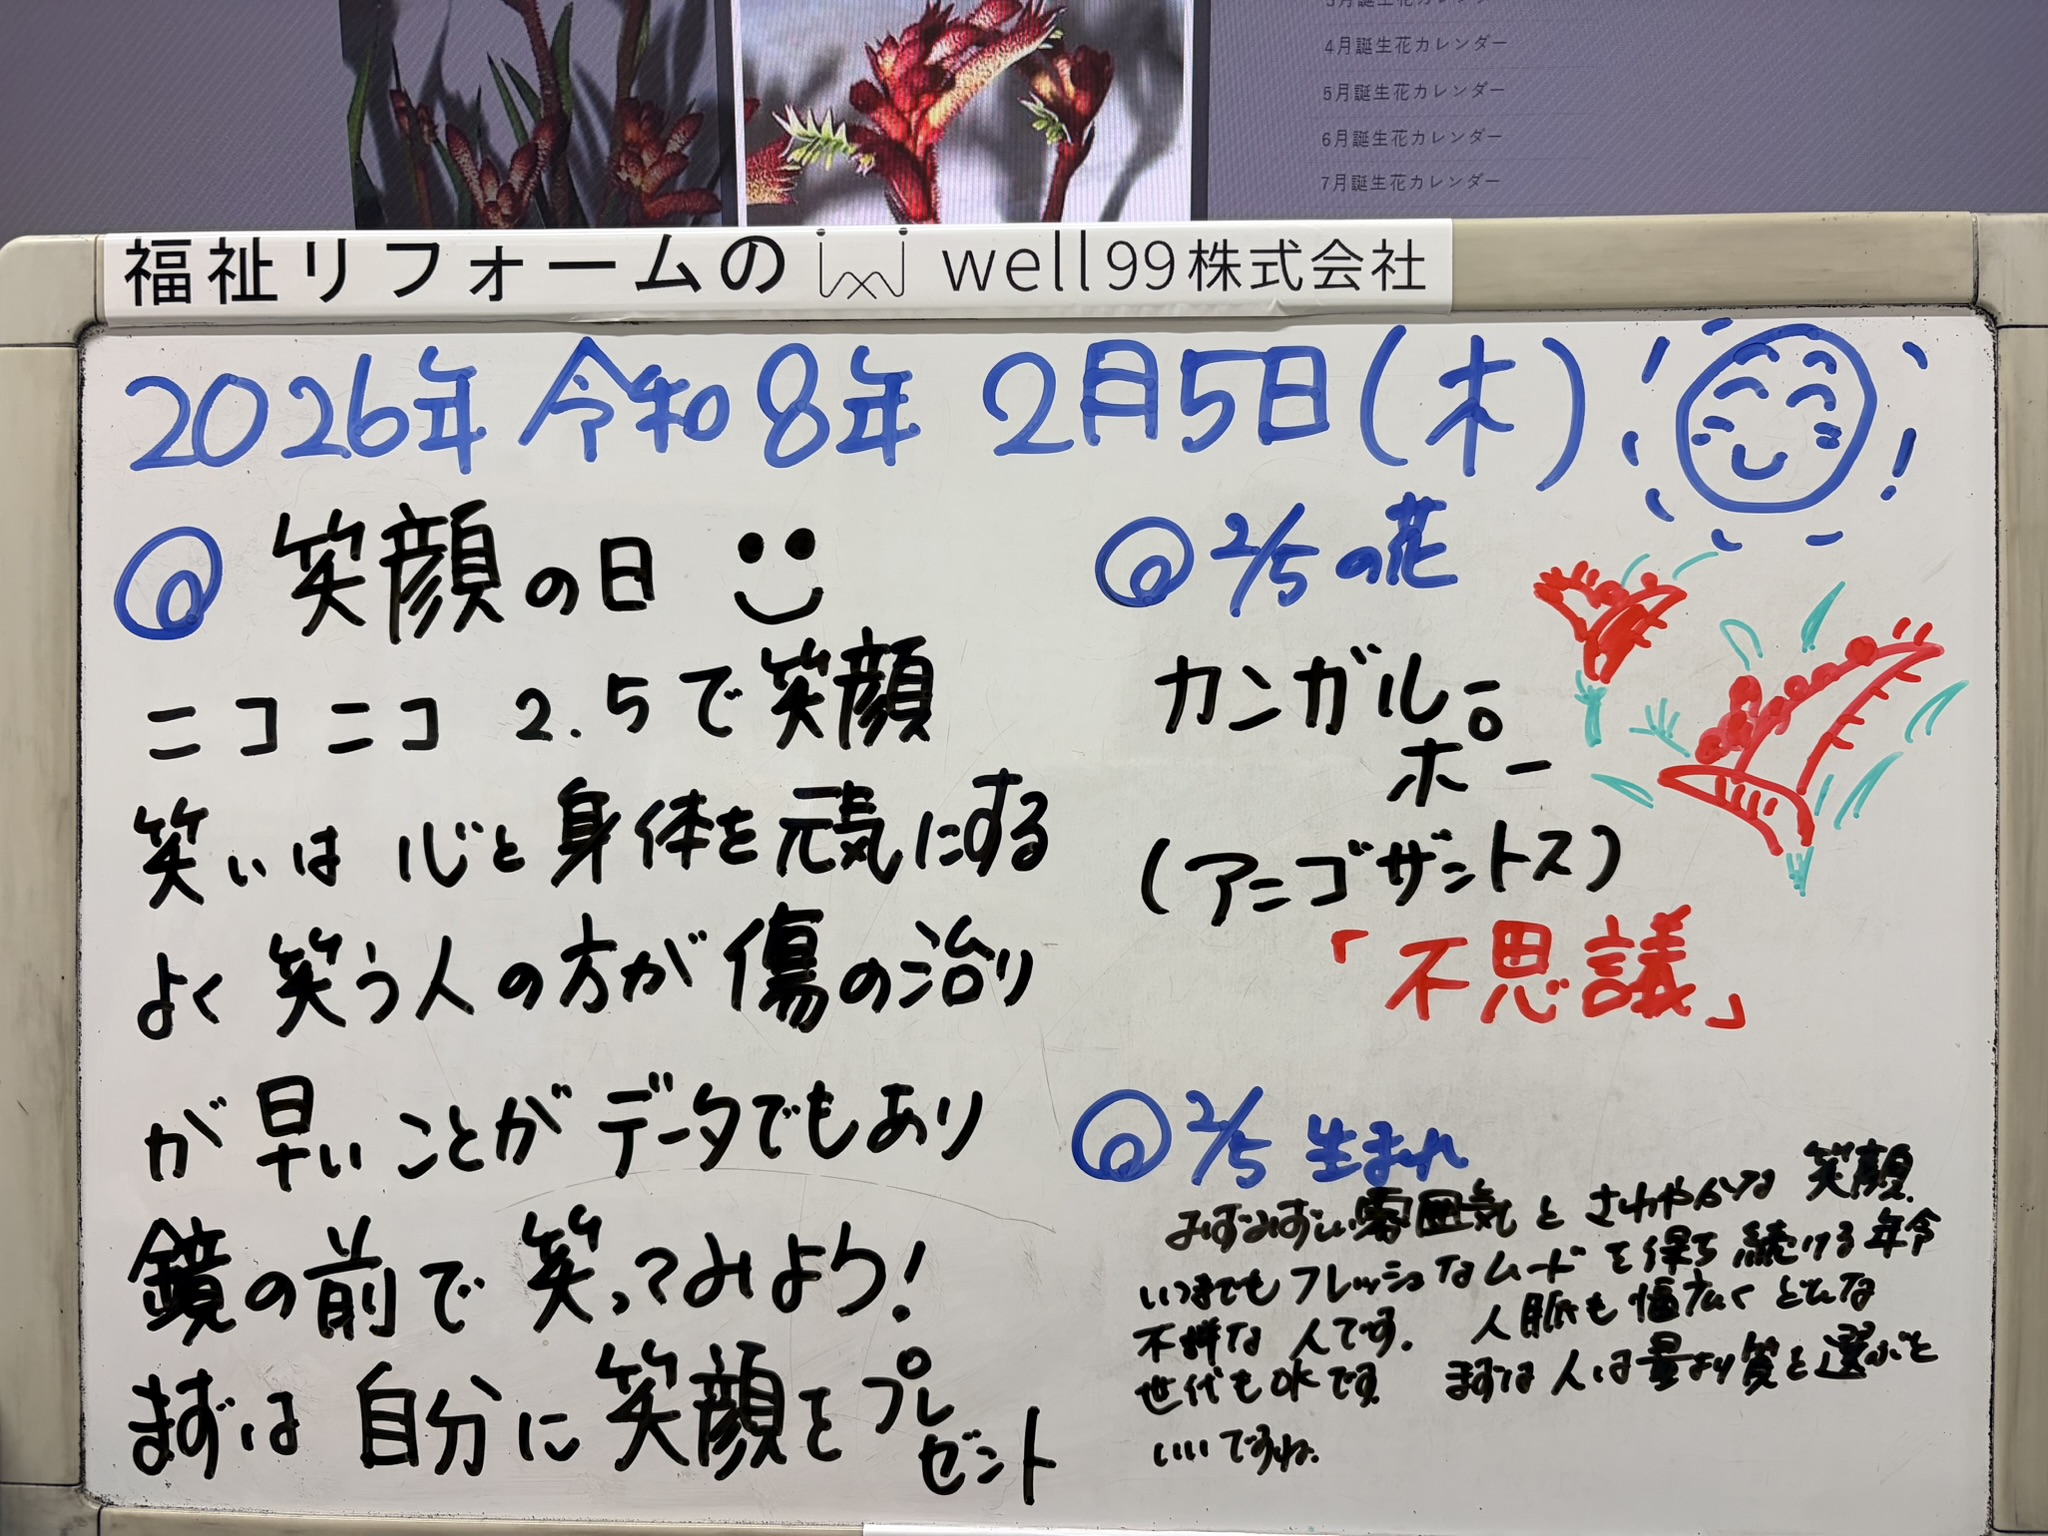 3月誕生花カレンダー
4月誕生花カレンダー
5月誕生花カレンダー
6月誕生花カレンダー
7月誕生花カレンダー
福祉リフォームの well99株式会社
2026年 令和8年 2月5日(木)
笑顔の日
ニコニコ 2.5で笑顔
笑いは 心と身体を元気にする
よく笑う人の方が傷の治り
が早いことがデータでもあり
鏡の前で笑ってみよう!
まずは 自分に笑顔をプレゼント
2/5の花
カンガルー
ポー
(アニゴザントス)
「不思議」
2/5 生まれ
みずみずしい雰囲気と さわやかな 笑顔
いつまでも フレッシュなムードを保ち続ける年令
不詳な 人です。 人脈も幅広く どんな
世代もOKです まずは人は量より質を選ぶと
いいですね。